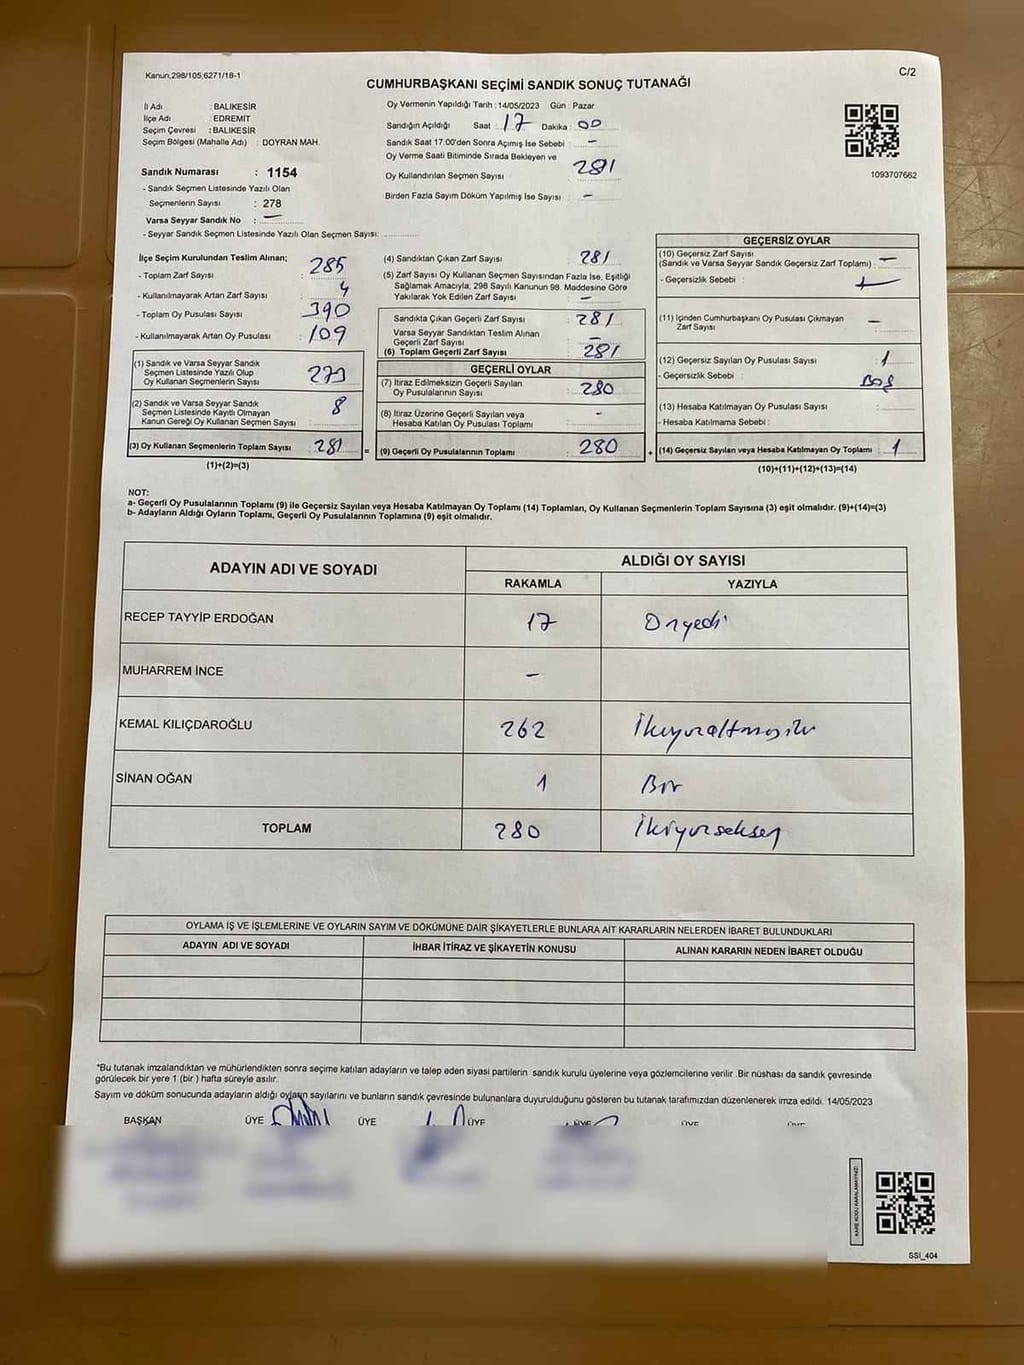 Kanun,298/105,6271/18-1
C/2
CUMHURBAŞKANI SEÇİMİ SANDIK SONUÇ TUTANAĞI
İl Adı : BALIKESİR
İlçe Adı : EDREMIT
Seçim Çevresi : BALIKESİR
Seçim Bölgesi (Mahalle Adı) : DOYRAN MAH.
Sandık Numarası : 1154
- Sandık Seçmen Listesinde Yazılı Olan
Seçmenlerin Sayısı : 278
Varsa Seyyar Sandık No : —
- Seyyar Sandık Seçmen Listesinde Yazılı Olan Seçmen Sayısı:
Oy Vermenin Yapıldığı Tarih : 14/05/2023 Gün : Pazar
Sandığın Açıldığı Saat : 17 Dakika : 00
Sandık Saat 17:00'den Sonra Açımış İse Sebebi : —
Oy Verme Saati Bitiminde Sırada Bekleyen ve
Oy Kullandırılan Seçmen Sayısı : 281
Birden Fazla Sayım Döküm Yapılmış İse Sayısı : —
1093707662
İlçe Seçim Kurulundan Teslim Alınan;
- Toplam Zarf Sayısı : 285
- Kullanılmayarak Artan Zarf Sayısı : 4
- Toplam Oy Pusulası Sayısı : 390
- Kullanılmayarak Artan Oy Pusulası : 109
(1) Sandık ve Varsa Seyyar Sandık
Seçmen Listesinde Yazılı Olup
Oy Kullanan Seçmenlerin Sayısı : 273
(2) Sandık ve Varsa Seyyar Sandık
Seçmen Listesinde Kayıtlı Olmayan
Kanun Gereği Oy Kullanan Seçmen Sayısı : 8
(3) Oy Kullanan Seçmenlerin Toplam Sayısı : 281
(1)+(2)=(3)
(4) Sandıktan Çıkan Zarf Sayısı : 281
(5) Zarf Sayısı Oy Kullanan Seçmen Sayısından Fazla İse, Eşitliği
Sağlamak Amacıyla; 298 Sayılı Kanunun 98. Maddesine Göre
Yakılarak Yok Edilen Zarf Sayısı : —
Sandıkta Çıkan Geçerli Zarf Sayısı : 281
Varsa Seyyar Sandıktan Teslim Alınan
Geçerli Zarf Sayısı : —
(6) Toplam Geçerli Zarf Sayısı : 281
GEÇERLİ OYLAR
(7) İtiraz Edilmeksizin Geçerli Sayılan
Oy Pusulalarının Sayısı : 280
(8) İtiraz Üzerine Geçerli Sayılan veya
Hesaba Katılan Oy Pusulası Toplamı : -
= (9) Geçerli Oy Pusulalarının Toplamı : 280
GEÇERSİZ OYLAR
(10) Geçersiz Zarf Sayısı
(Sandık ve Varsa Seyyar Sandık Geçersiz Zarf Toplamı) : —
- Geçersizlik Sebebi :
(11) İçinden Cumhurbaşkanı Oy Pusulası Çıkmayan
Zarf Sayısı : —
(12) Geçersiz Sayılan Oy Pusulası Sayısı : 1
- Geçersizlik Sebebi : Boş
(13) Hesaba Katılmayan Oy Pusulası Sayısı :
- Hesaba Katılmama Sebebi :
+ (14) Geçersiz Sayılan veya Hesaba Katılmayan Oy Toplamı : 1
(10)+(11)+(12)+(13)=(14)
NOT:
a- Geçerli Oy Pusulalarının Toplamı (9) ile Geçersiz Sayılan veya Hesaba Katılmayan Oy Toplamı (14) Toplamları, Oy Kullanan Seçmenlerin Toplam Sayısına (3) eşit olmalıdır. (9)+(14)=(3)
b- Adayların Aldığı Oyların Toplamı, Geçerli Oy Pusulalarının Toplamına (9) eşit olmalıdır.
ADAYIN ADI VE SOYADI
ALDIĞI OY SAYISI
RAKAMLA YAZIYLA
RECEP TAYYİP ERDOĞAN 17 Onyedi
MUHARREM İNCE —
KEMAL KILIÇDAROĞLU 262 İkiyüzaltmışiki
SİNAN OĞAN 1 Bir
TOPLAM 280 İkiyüzseksen
OYLAMA İŞ VE İŞLEMLERİNE VE OYLARIN SAYIM VE DÖKÜMÜNE DAİR ŞİKAYETLERLE BUNLARA AİT KARARLARIN NELERDEN İBARET BULUNDUKLARI
ADAYIN ADI VE SOYADI İHBAR İTİRAZ VE ŞİKAYETİN KONUSU ALINAN KARARIN NEDEN İBARET OLDUĞU
*Bu tutanak imzalandıktan ve mühürlendikten sonra seçime katılan adayların ve talep eden siyasi partilerin sandık kurulu üyelerine veya gözlemcilerine verilir .Bir nüshası da sandık çevresinde
görülecek bir yere 1 (bir ) hafta süreyle asılır.
Sayım ve döküm sonucunda adayların aldığı oyların sayılarını ve bunların sandık çevresinde bulunanlara duyurulduğunu gösteren bu tutanak tarafımızdan düzenlenerek imza edildi. 14/05/2023
BAŞKAN ÜYE ÜYE ÜYE ÜYE ÜYE ÜYE
KARE KODU KARALAMAYINIZ!
SSI_404